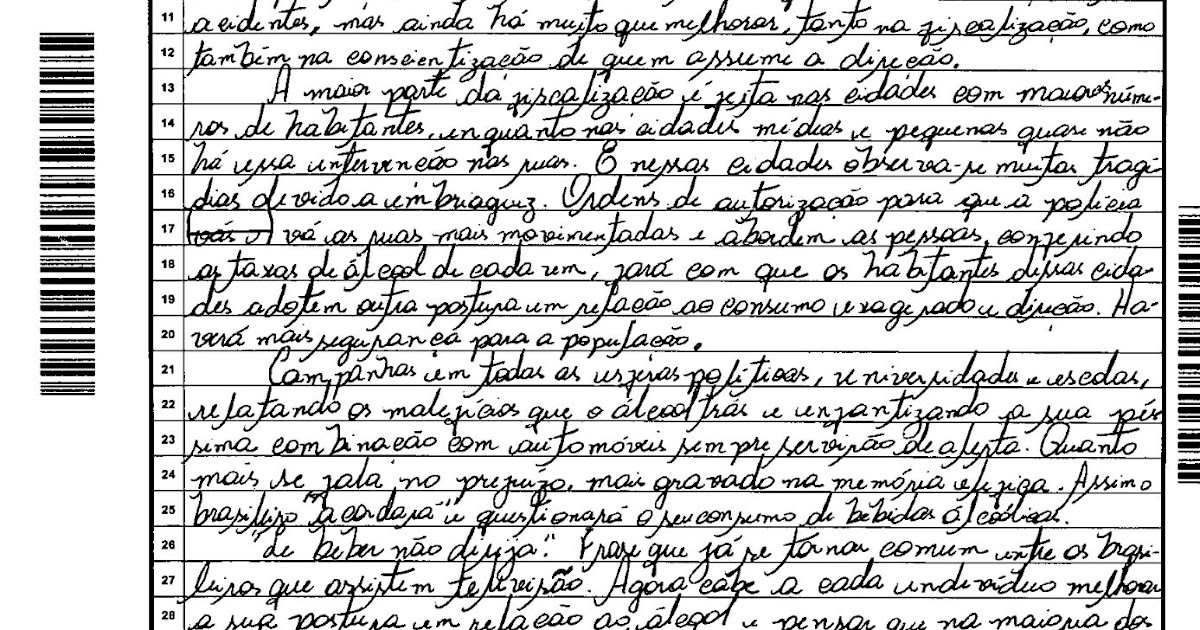 11 acidentes, mas ainda há muito que melhorar, tanto na fiscalização, como
12 também na conscientização de quem assume a direção.
13 A maior parte da fiscalização é feita nas cidades com maiores núme-
14 ros de habitantes, enquanto nas cidades médias e pequenas quase não
15 há essa intervenção nas ruas. E nessas cidades observa-se muitas tragé-
16 dias devido a embriaguez. Ordens de autorização para que a polícia
17 vá as ruas mais movimentadas e abordem as pessoas, conferindo
18 as taxas de álcool de cada um, fará com que os habitantes dessas cida-
19 des adotem outra postura em relação ao consumo exagerado e direção. Ha-
20 verá mais segurança para a população.
21 Campanhas em todas as esferas políticas, universidades e escolas,
22 relatando os malefícios que o álcool trás e enfantizando a sua pés-
23 sima combinação com automóveis sempre servirão de alerta. Quanto
24 mais se fala no prejuízo, mais gravado na memória ele fica. Assim o
25 brasileiro "acordará" e questionará o seu consumo de bebidas álcoólicas.
26 "Se beber não dirija". Frase que já se tornou comum entre os brasi-
27 leiros que assistem televisão. Agora cabe a cada indivíduo melhorar
28 a sua postura em relação ao álcool e pensar que na maioria das